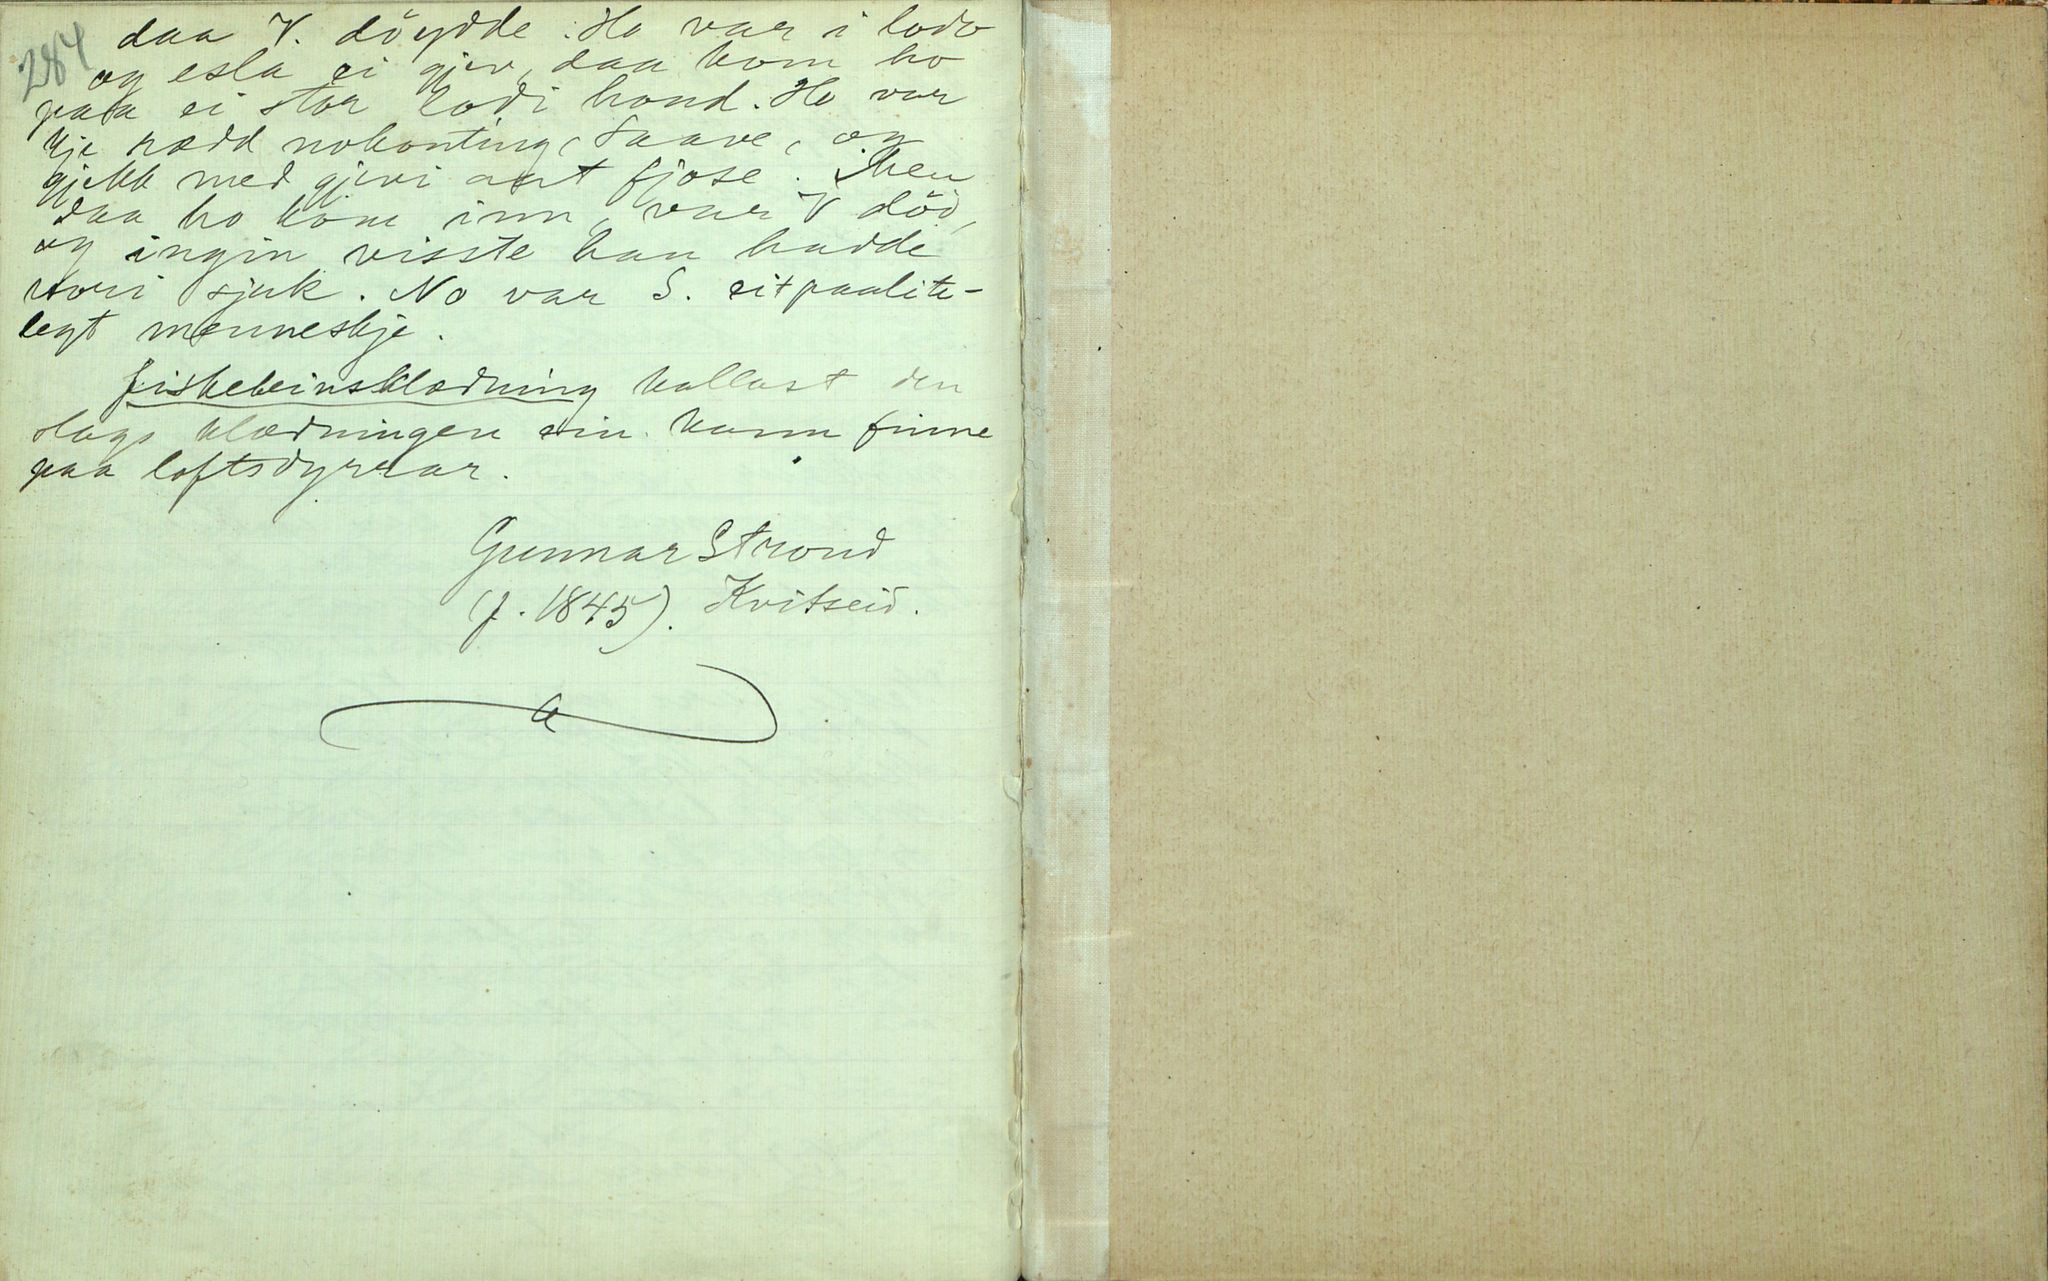 284
daa V. döydde. Ho var i lodo
og esla ei gjev, daa kom ho
paa ei stor lodi hond. Ho var
kje rædd nokonting, Saave, og
gjekk med gjevi aat fjose. Men
daa ho kom inn, var V död,
og ingin visste han hadde
vori sjuk. No var S. eit paalite-
legt menneskje.
Fiskebeinsklædning kallast den
slags klædningen ein kann finne
paa loftsdyrrar.
Gunnar Strond
(f. 1845). Kvitseid.